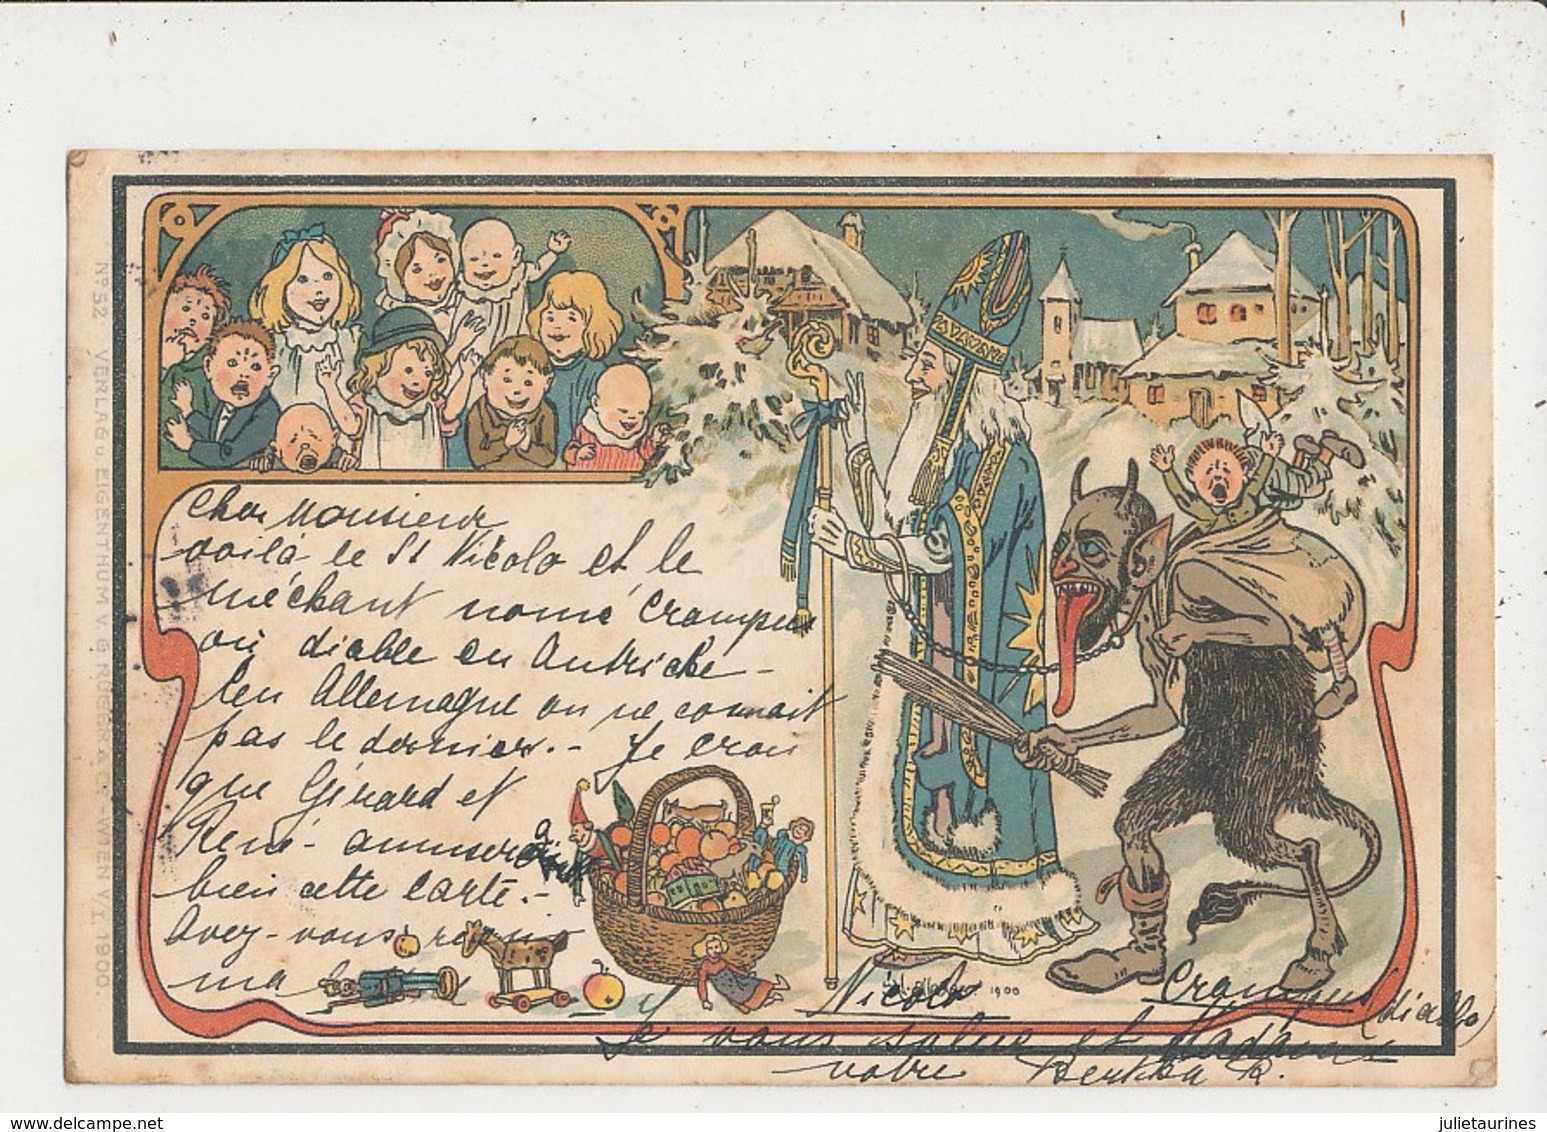 Cher Monsieur
voilà le St Nicolo et le
méchant nomé Crampus
où diable en Autriche -
(en Allemagne on ne connait
pas le dernier. - Je crois
que Gérard et
René - amusera
bien cette carte. -
Avez-vous
ma
Nicolo
Crampus
(diable)
Je vous salue et Madame
votre Bertha R.
1900
No. 52. VERLAG u EIGENTHUM V. G. GRUBER & Co - WIEN V/I. 1900.
julietaurines